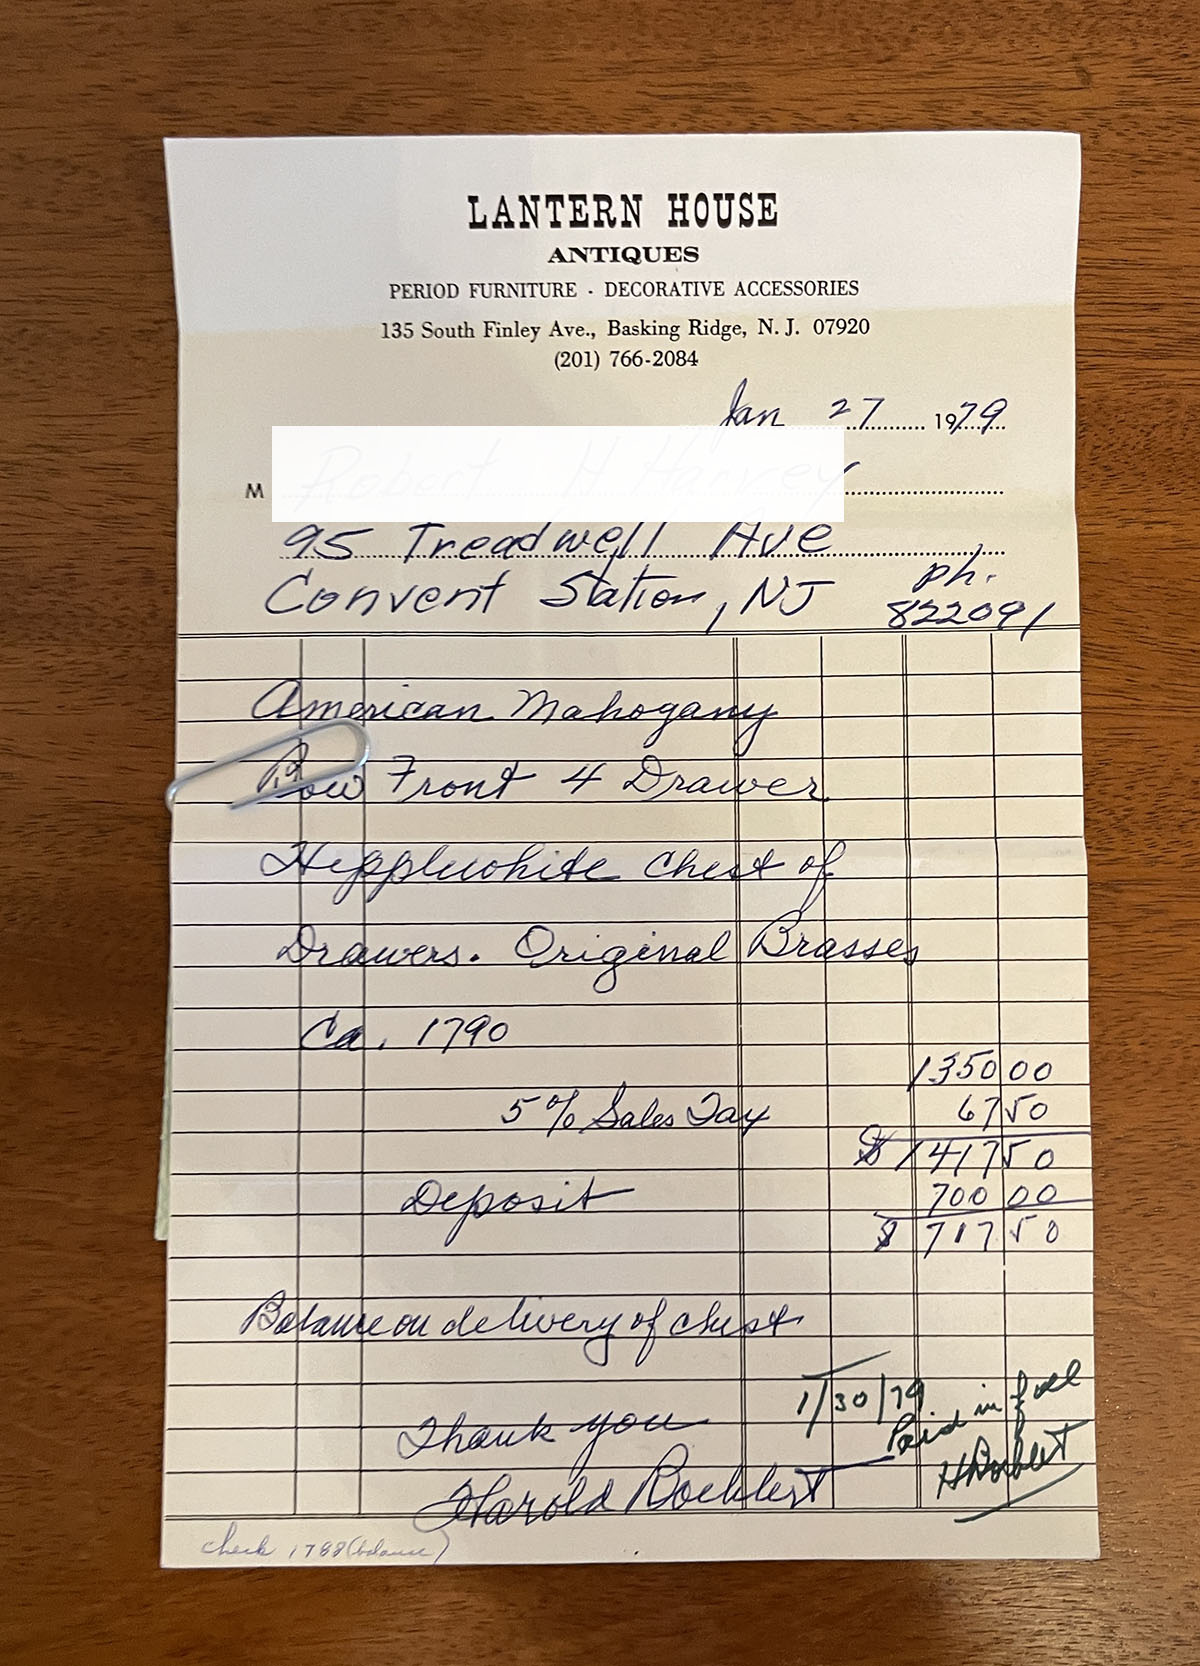 LANTERN HOUSE
ANTIQUES
PERIOD FURNITURE - DECORATIVE ACCESSORIES
135 South Finley Ave., Basking Ridge, N. J. 07920
(201) 766-2084
Jan 27 1979
M
95 Treadwell Ave
Convent Station, NJ
ph.
822091
American Mahogany
Bow Front 4 Drawer
Hepplewhite Chest of
Drawers. Original Brasses
Ca. 1790
1350 00
5% Sales Tax 67 50
$ 1417 50
Deposit 700 00
$ 717 50
Balance on delivery of chest
1/30/79
Paid in full
Thank you
Harold
check 1788 (balance)